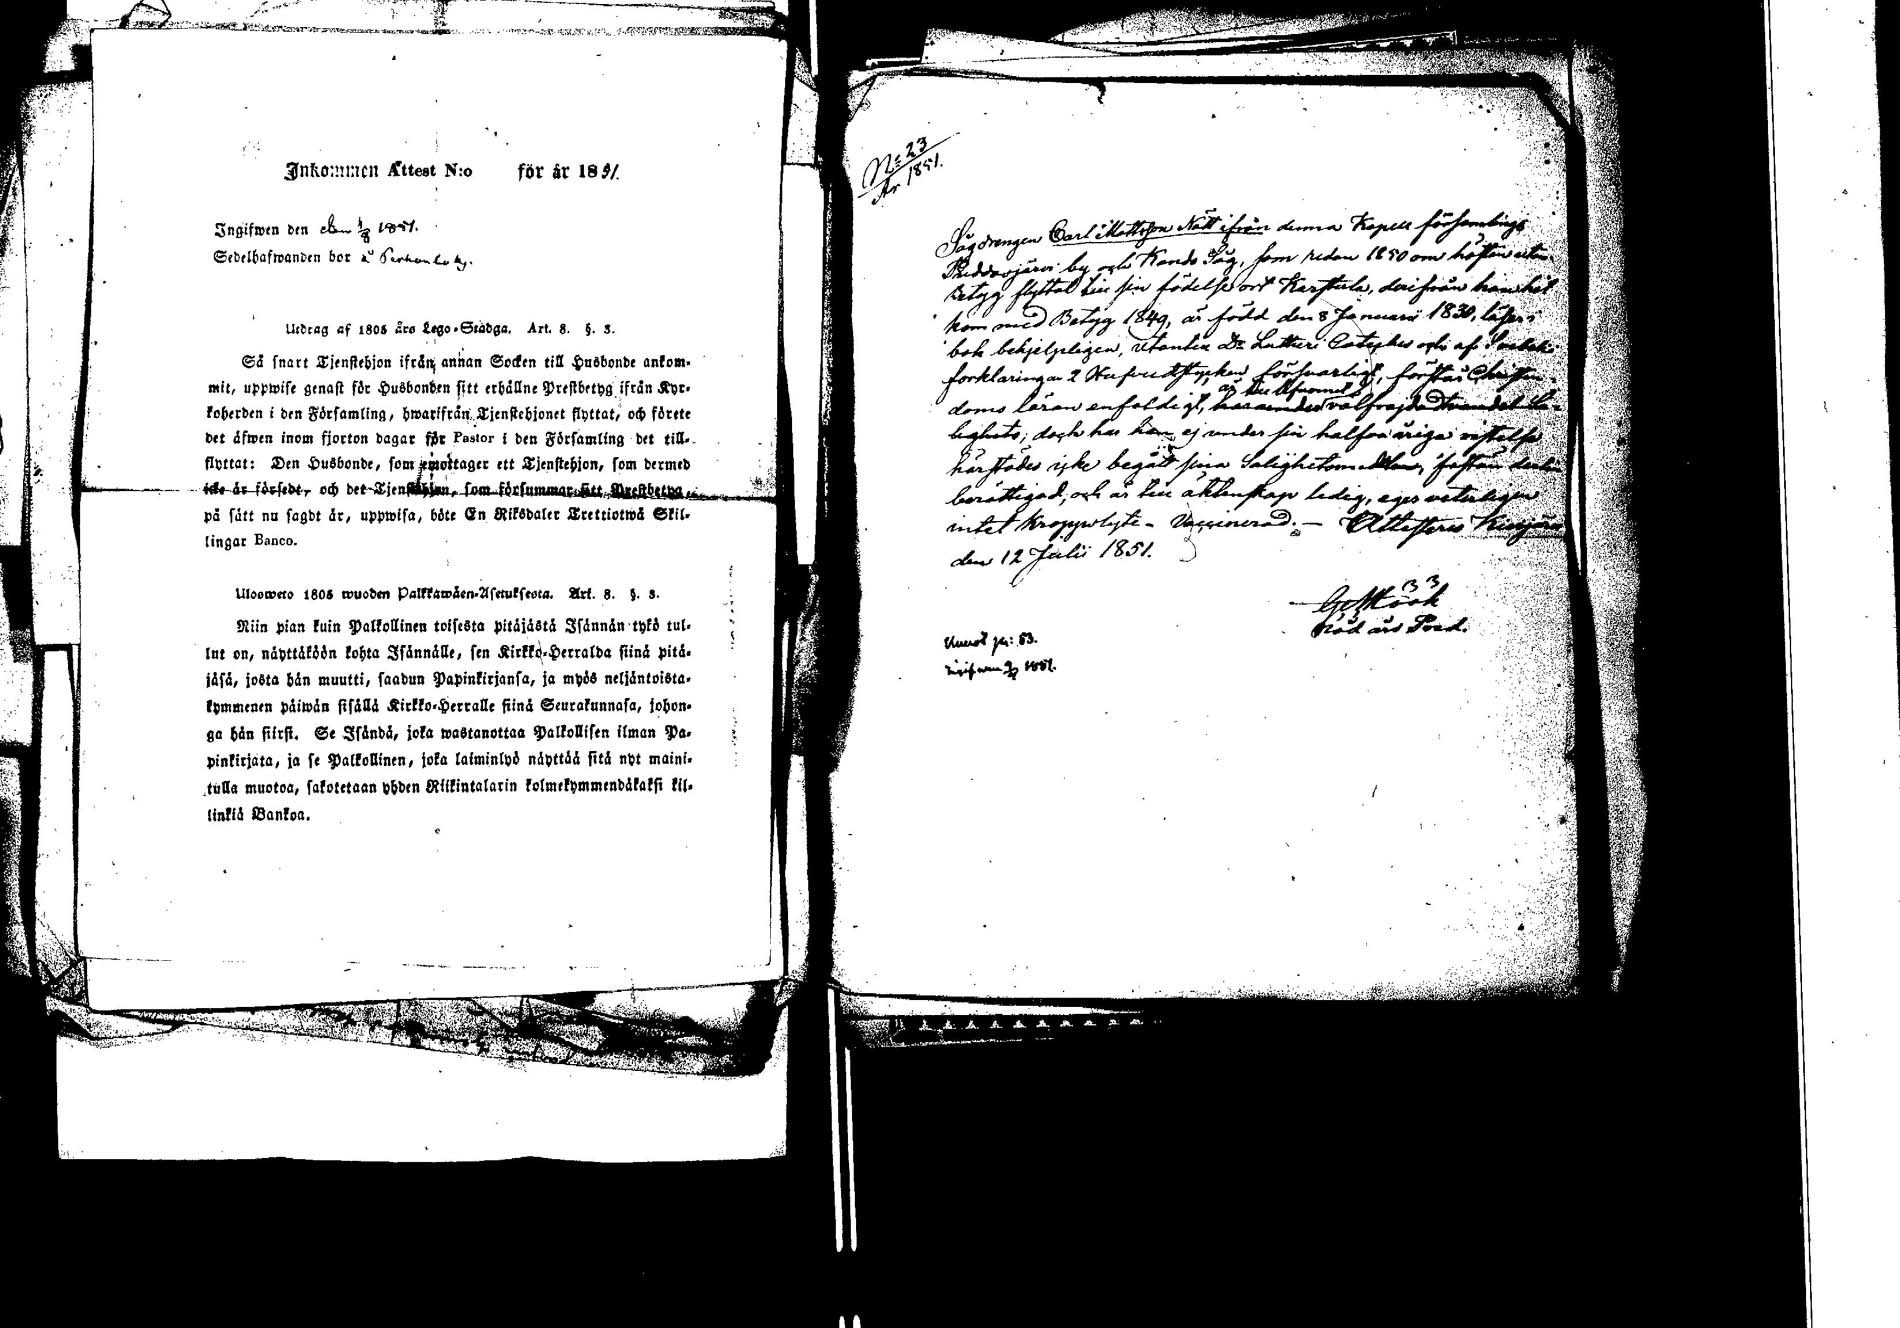 Inkommen Attest N:o för år 1851.
Ingifwen den den 1/8 1851.
Sedelhafwanden bor å
Utdrag af 1805 års Lego-Stadga. Art. 8. §. 3.
Så snart Tjenstehjon ifrån annan Socken till Husbonde ankom-
mit, uppwise genast för Husbonden sitt erhållne Prestbetyg ifrån Kyr-
koherden i den Församling, hwarifrån Tjenstehjonet flyttat, och förete
det äfwen inom fjorton dagar för Pastor i den Församling det till-
flyttat: Den Husbonde, som emottager ett Tjenstehjon, som dermed
icke är försedt, och det Tjenstehjon, som försummar sitt Prestbetyg,
på sätt nu sagdt är, uppwisa, böte En Riksdaler Trettiotwå Skil-
lingar Banco.
Ulosweto 1805 wuoden Palkkawäen-Asetuksesta. Art. 8. §. 3.
Niin pian kuin Palkollinen toisesta pitäjästä Isännän tykö tul-
lut on, näyttäköön kohta Isännälle, sen Kirkko-Herralda siinä pitä-
jäsä, josta hän muutti, saadun Papinkirjansa, ja myös neljäntoista-
kymmenen päiwän sisällä Kirkko-Herralle siinä Seurakunnasa, johon-
ga hän siirsi. Se Isändä, joka wastanottaa Palkollisen ilman Pa-
pinkirjata, ja se Palkollinen, joka laiminlyö näyttää sitä nyt maini-
tulla muotoa, sakotetaan yhden Riikintalarin kolmekymmendäkaksi kil-
linkiä Bankoa.
No 23
År 1851.
Sågdrengen Carl Mattsson Nätt ifrån denna Kapell församlings
by och Såg, som redan 1850 om hösten utan
Betyg flyttat till sin födelse ort Karstula, derifrån han hit
kom med Betyg 1849, är född den 8 Januarii 1830, läser i
bok behjelpligen, utantill Dr Lutheri Cateches och af
forklaringen 2 Hufvudstycken försvarligt, förstår Christen-
doms läran enfaldigt, är till
lighets; dock har han ej under sin halfva åriga vistelse
härstädes icke begått sina Salighetsmedlen, fastän dertill
berättigad, och är till äktenskap ledig, eger veterligen
intet Kroppslyte - Vaccinerad. - Attesteras
den 12 Julii 1851.